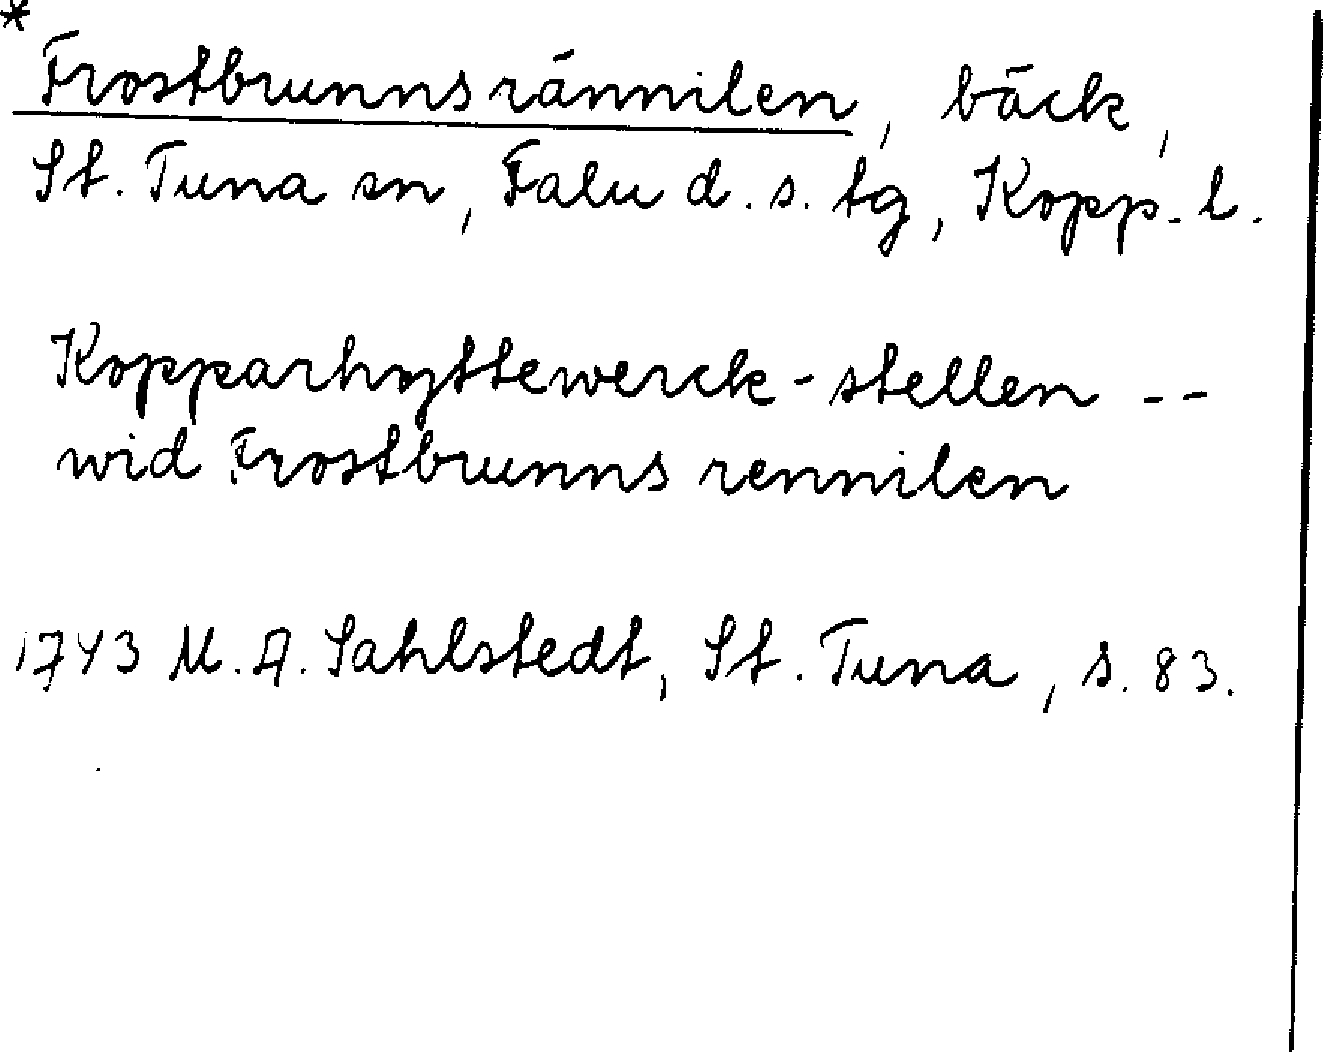 *
Frostbrunnsrännilen, bäck,
St. Tuna sn, Falu d. s. tg, Kopp. l.
Kopparhyttewerck-stellen --
wid Frostbrunns rennilen
1743 M. A. Sahlstedt, St. Tuna, s. 83.